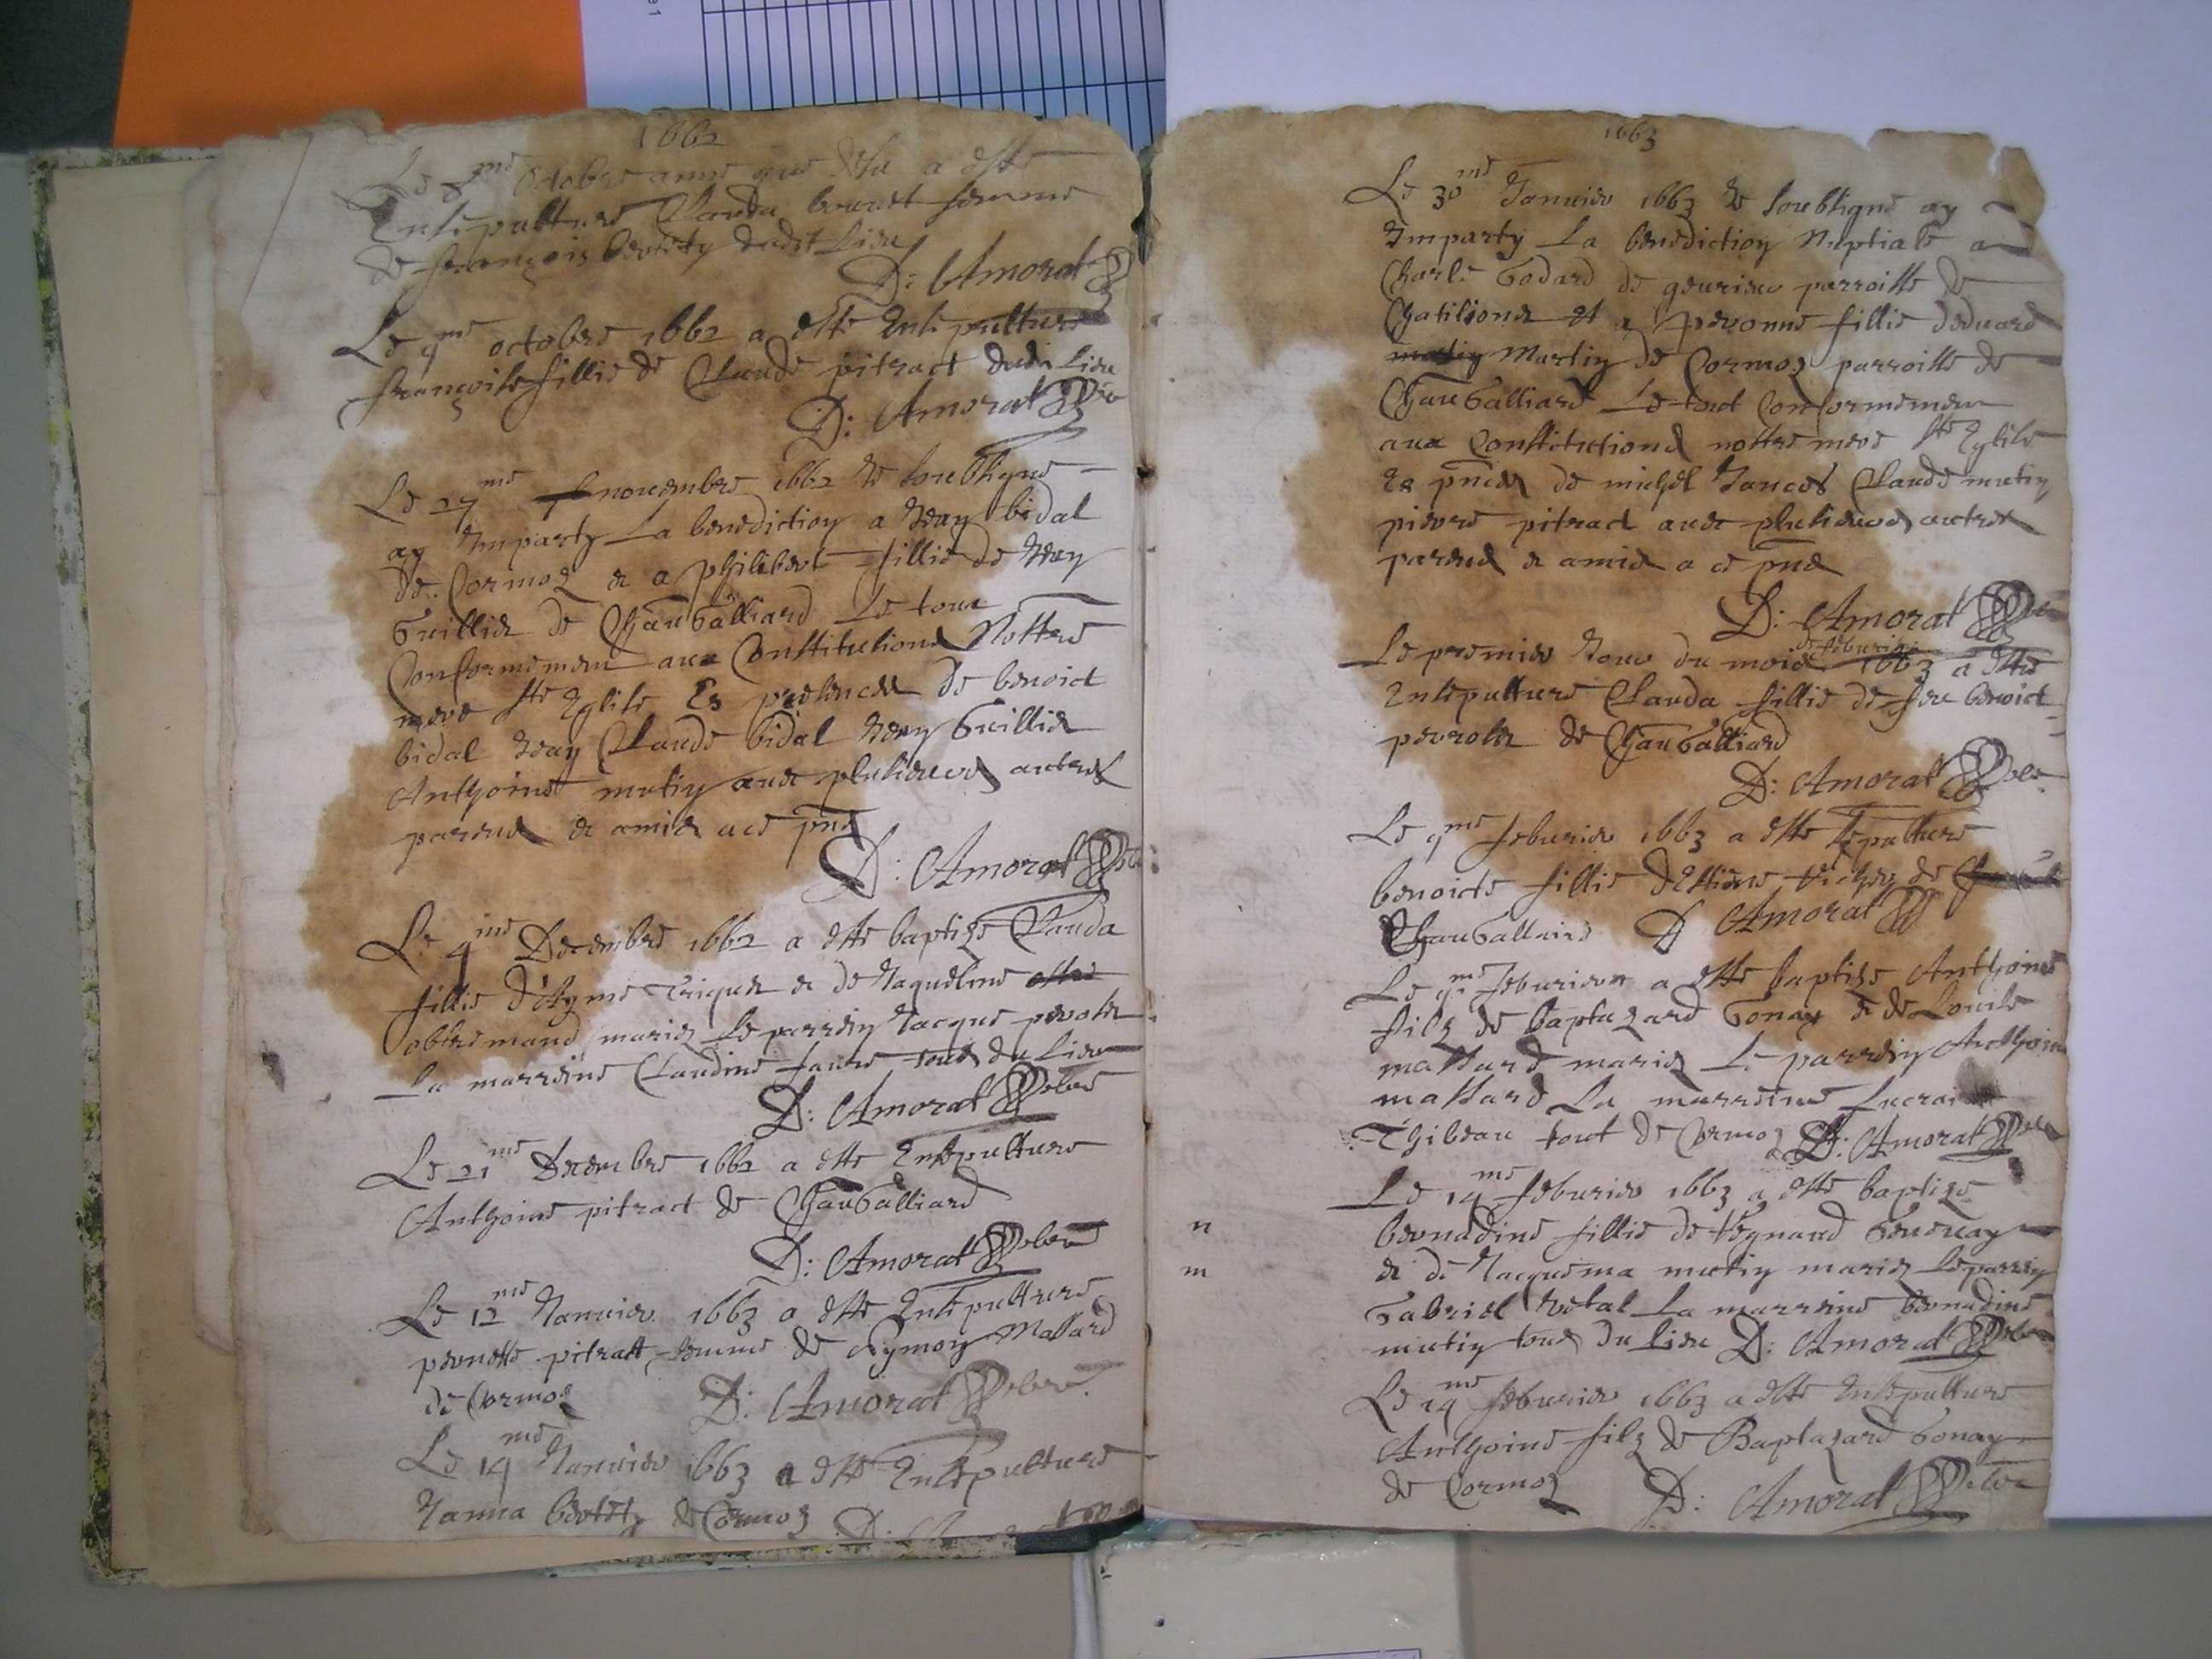 1662
Le 8me octobre anne que dessus a este
Ensepulture Clauda femme
de françois dudit lieu
D: Amorat
Le 9me octobre 1662 a este Ensepulture
françoise fillie de Claude pitract dudit lieu
D: Amorat
Le 27me novembre 1662 Je soubsigne
ay Imparty La benediction a Jean bidal
de Cormoz et a philiberte fillie de Jean
Guillier de Chaugalliard Le tout
Conformement aux Constitutions Nostre
mere ste Eglise Es presences de benoict
bidal Jean Claude bidal Jean Guillier
Anthoine mutin avec plusieurs autres
parens et amis a ce pns
D: Amorat
Le 4me Decembre 1662 a este baptize Clauda
fillie d'Ayme et de Jaqueline
mariez Le parrin Jacque
La marrine Claudine faure tous du lieu
D: Amorat
Le 21me Decembre 1662 a este Ensepulture
Anthoine pitract de Chaugalliard
D: Amorat
Le 12me Janvier 1663 a este Ensepulture
pernette pitratt femme de Symon Massard
de Cormoz D: Amorat
Le 14me Janvier 1663 a este Ensepulture
Janna de Cormoz D:
1663
Le 30me Janvier 1663 Je soubsigne ay
Imparty La benediction Nuptiale a
Charle Godard de parroisse de
Chatilions et a pevonne fillie deduard
Martin de Cormoz parroisse de
Chaugalliard Le tout Conformement
aux Constitutions nostre mere ste Eglise
Es pnces de michel Claude mutin
pierre pitract avec plusieurs autres
parens et amis a ce pns
D: Amorat
Le premier Jour du mois de feburier 1663 a este
Ensepulture Clauda fillie de feu benoict
de Chaugalliard
D: Amorat
Le 9me feburier 1663 a este sepulture
benoicte fillie d'Estiene de
Chaugalliard D Amorat
Le 9me feburier a este baptize Anthoine
filz de baptazard Gonay et de Louise
massard mariez Le parrin Anthoine
massard La marrine
Thibeau tout de Cormoz D: Amorat
Le 14me feburier 1663 a este baptize
n
bernadine fillie de
m
et de Jacquema mutin mariez Le parrin
Gabriel La marrine bernadine
mutin tous du lieu D: Amorat
Le 14me feburier 1663 a este Ensepulture
Anthoine filz de Baptazard Gonay
de Cormoz D: Amorat